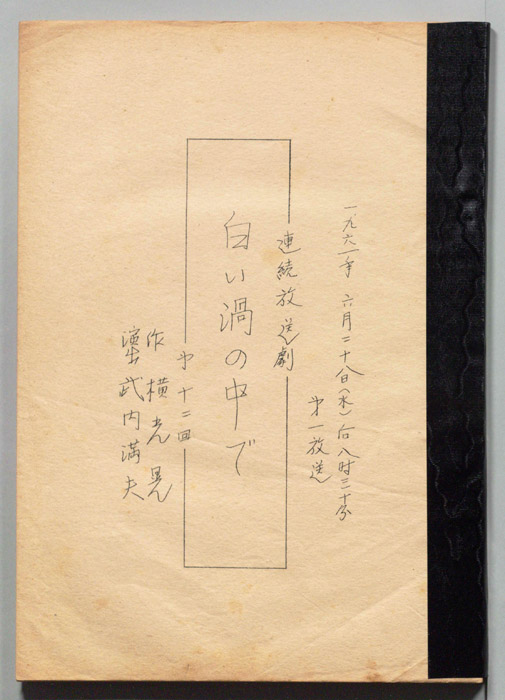 一九六一年 六月二十八日(水)后八时三十分
第一放送
連続放送劇
白い渦の中で
第十二回
作 横光晃
演出 武内満夫